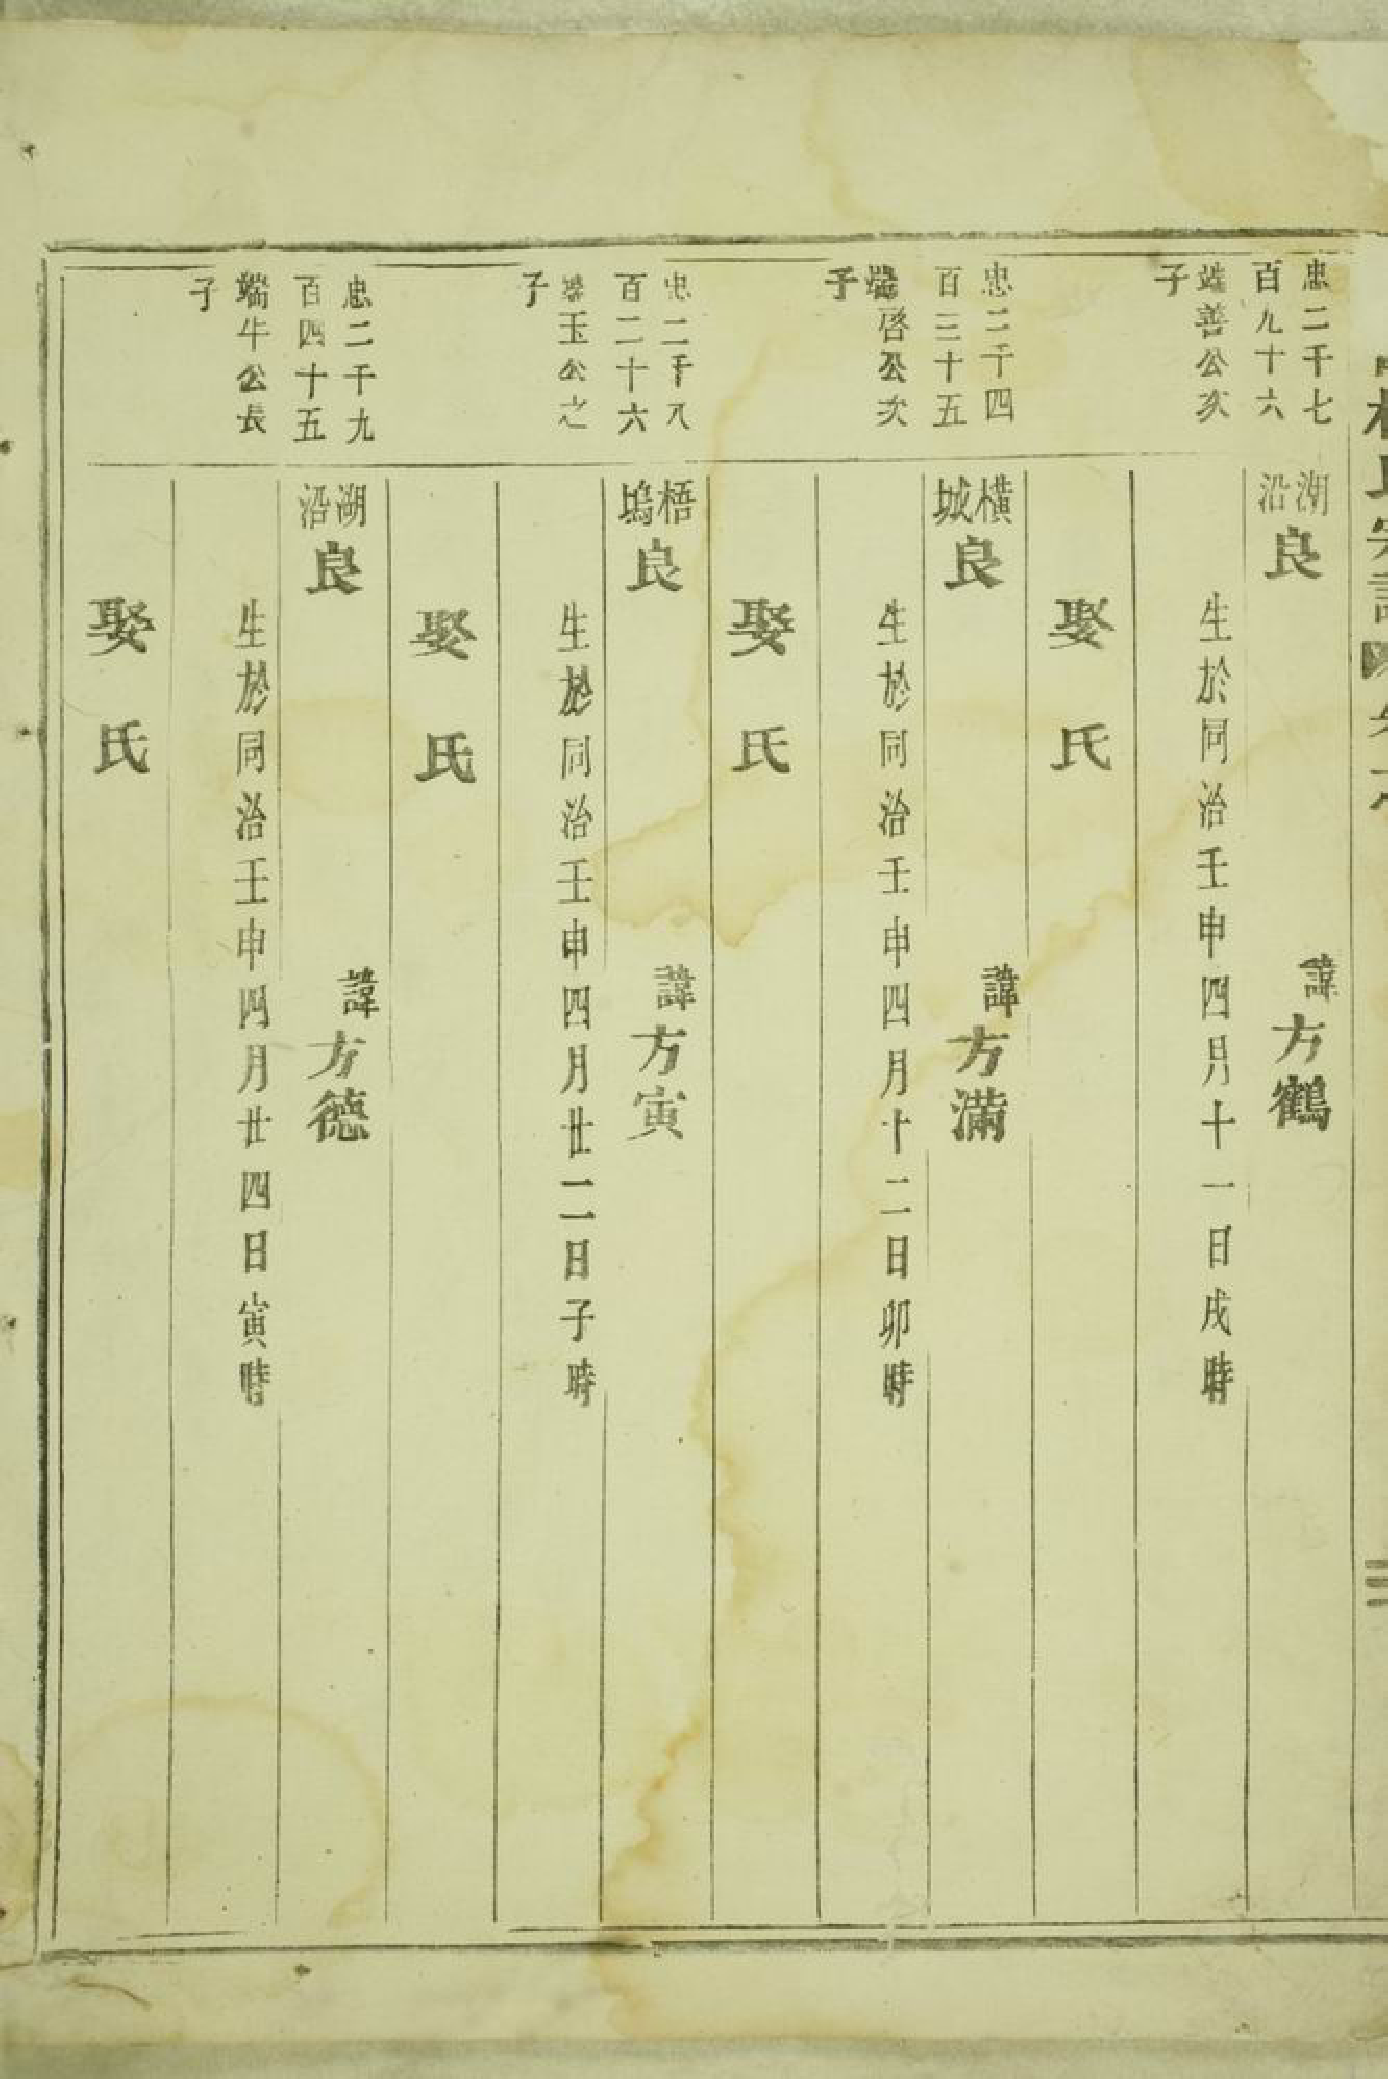 氏宗譜
忠二千七
百九十六
端善公次
子
湖沿
良
諱方鶴
生於同治壬申四月十一日戌時
娶氏
忠二千四
百三十五
端啓公次
子
橫城
良
諱方滿
生於同治壬申四月十二日卯時
娶氏
忠二千八
百二十六
端玉公之
子
梧塢
良
諱方寅
生於同治壬申四月廿二日子時
娶氏
忠二千九
百四十五
端牛公長
子
湖沿
良
諱方德
生於同治壬申四月廿四日寅時
娶氏